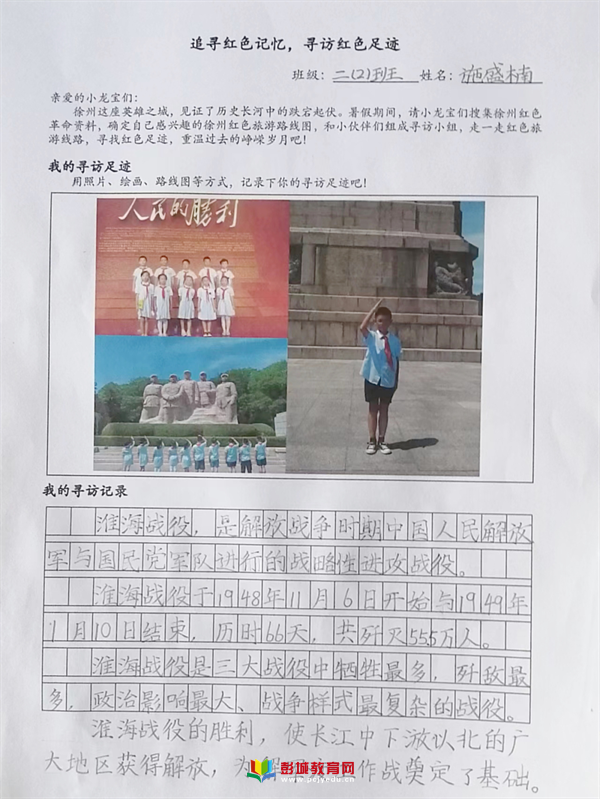 追寻红色记忆，寻访红色足迹
班级：二(2)班 姓名：施盛楠
亲爱的小龙宝们：
徐州这座英雄之城，见证了历史长河中的跌宕起伏。暑假期间，请小龙宝们搜集徐州红色
革命资料，确定自己感兴趣的徐州红色旅游路线图，和小伙伴们组成寻访小组，走一走红色旅
游线路，寻找红色足迹，重温过去的峥嵘岁月吧！
我的寻访足迹
用照片、绘画、路线图等方式，记录下你的寻访足迹吧！
人民的勝利
我的寻访记录
淮海战役，是解放战争时期中国人民解放
军与国民党军队进行的战略性进攻战役。
淮海战役于1948年11月6日开始与1949年
1月10日结束，历时66天，共歼灭55.5万人。
淮海战役是三大战役中牺牲最多，歼敌最
多，政治影响最大、战争样式最复杂的战役。
淮海战役的胜利，使长江中下游以北的广
大地区获得解放，为 作战奠定了基础。
彭城教育网
www.pcjy.edu.cn